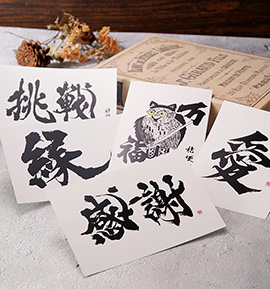 挑戦
縁
万
福
愛
感謝